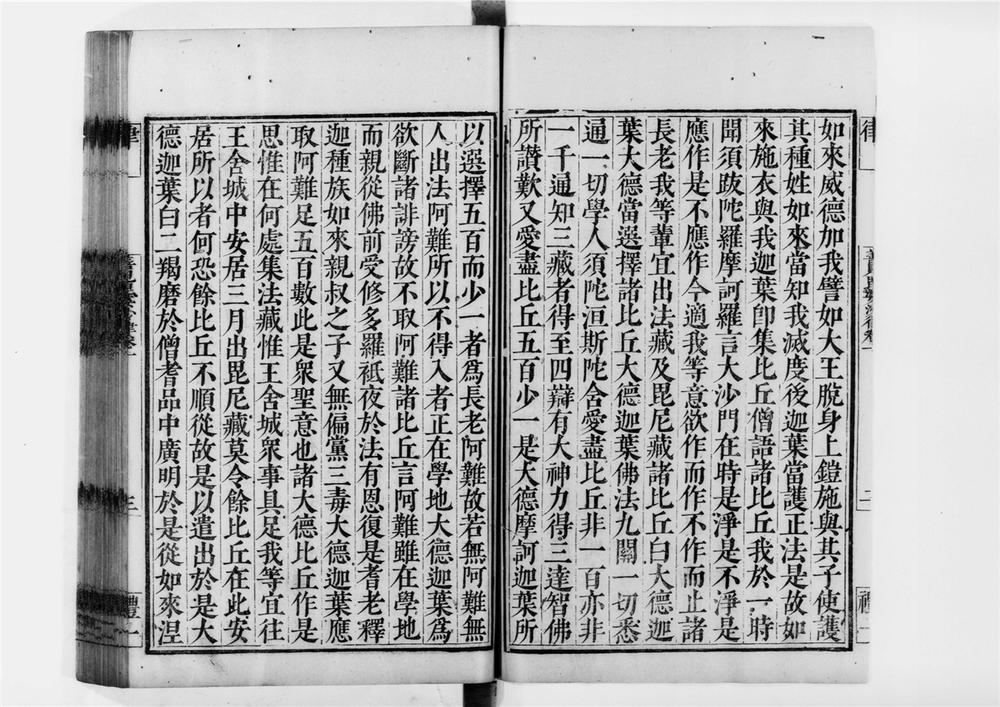 如來威德加我譬如大王脫身上鎧施與其子使護
其種姓如來當知我滅度後迦葉當護正法是故如
來施衣與我迦葉卽集比丘僧語諸比丘我於一時
聞須跋陀羅摩訶羅言大沙門在時是淨是不淨是
應作是不應作今適我等意欲作而作不作而止諸
長老我等輩宜出法藏及毘尼藏諸比丘白大德迦
葉大德當選擇諸比丘大德迦葉佛法九關一切悉
通一切學人須陀洹斯陀含愛盡比丘非一百亦非
一千通知三藏者得至四辯有大神力得三達智佛
所讚歎又愛盡比丘五百少一是大德摩訶迦葉所
以選擇五百而少一者爲長老阿難故若無阿難無
人出法阿難所以不得入者正在學地大德迦葉爲
欲斷諸誹謗故不取阿難諸比丘言阿難雖在學地
而親從佛前受修多羅祇夜於法有恩復是耆老釋
迦種族如來親叔之子又無偏黨三毒大德迦葉應
取阿難足五百數此是衆聖意也諸大德比丘作是
思惟在何處集法藏惟王舍城衆事具足我等宜往
王舍城中安居三月出毘尼藏莫令餘比丘在此安
居所以者何恐餘比丘不順從故是以遣出於是大
德迦葉白二羯磨於僧耆品中廣明於是從如來涅
律
三
禮一